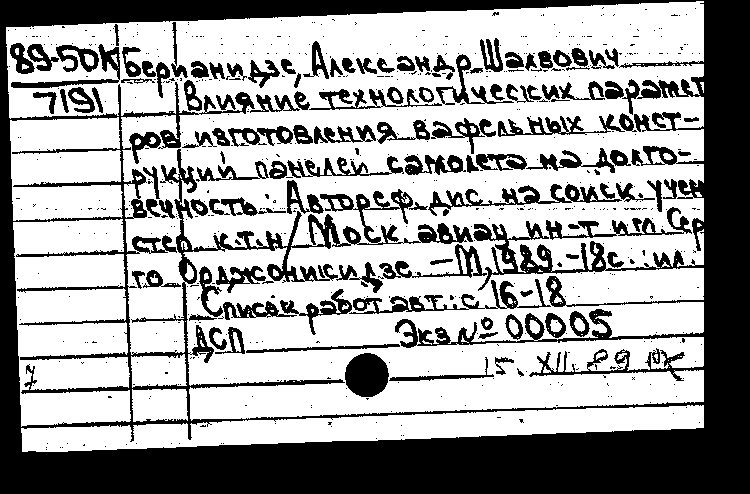 89-50К Берианидзе, Александр Шалвович
7191 Влияние технологических парамет
ров изготовления вафельных конст-
рукций панелей самолета на долго-
вечность: Автореф. дис. на соиск. учен
степ. к.т.н / Моск. авиац. ин-т им. Сер
го Орджоникидзе. – М, 1989. – 18с. : ил.
Список работ авт.: с. 16-18
ДСП Экз № 00005
7 15. XII. 89